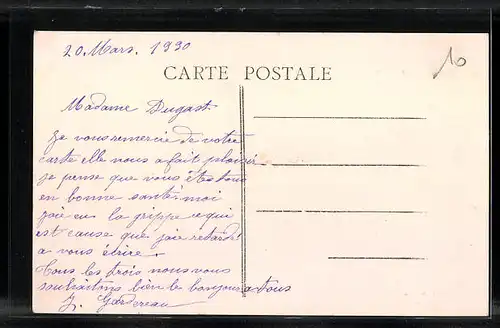 20 Mars. 1930
10
CARTE POSTALE
Madame Dugast.
Je vous remercie de votre
carte elle nous a fait plaisir
je pense que vous êtes tous
en bonne santé moi
jaie eu la grippe ce qui
est cause que jaie retardé
a vous écrire.
Tous les trois nous vous
souhaitons bien le bonjour a tous